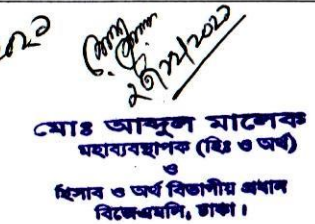 মোঃ আব্দুল মালেক
মহাব্যবস্থাপক (হিঃ ও অর্থ)
ও
হিসাব ও অর্থ বিভাগীয় প্রধান
বিজেএমসি, ঢাকা।